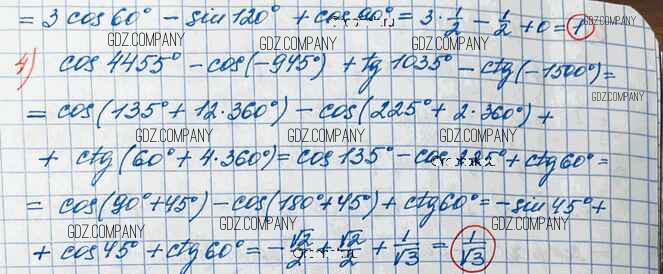 = 3 cos 60° - sin 120° + cos 90° = 3 · 1/2 - 1/2 + 0 = 1
GDZ.COMPANY GDZ.COMPANY GDZ.COMPANY
4) cos 4455° - cos(-945°) + tg 1035° - ctg(-1500°) =
GDZ.COMPANY
= cos(135° + 12·360°) - cos(225° + 2·360°) +
GDZ.COMPANY GDZ.COMPANY
+ ctg(60° + 4·360°) = cos 135° - cos 225° + ctg 60° =
= cos(90° + 45°) - cos(180° + 45°) + ctg 60° = - sin 45° +
GDZ.COMPANY GDZ.COMPANY GDZ.COMPANY
+ cos 45° + ctg 60° = - √2/2 + √2/2 + 1/√3 = 1/√3